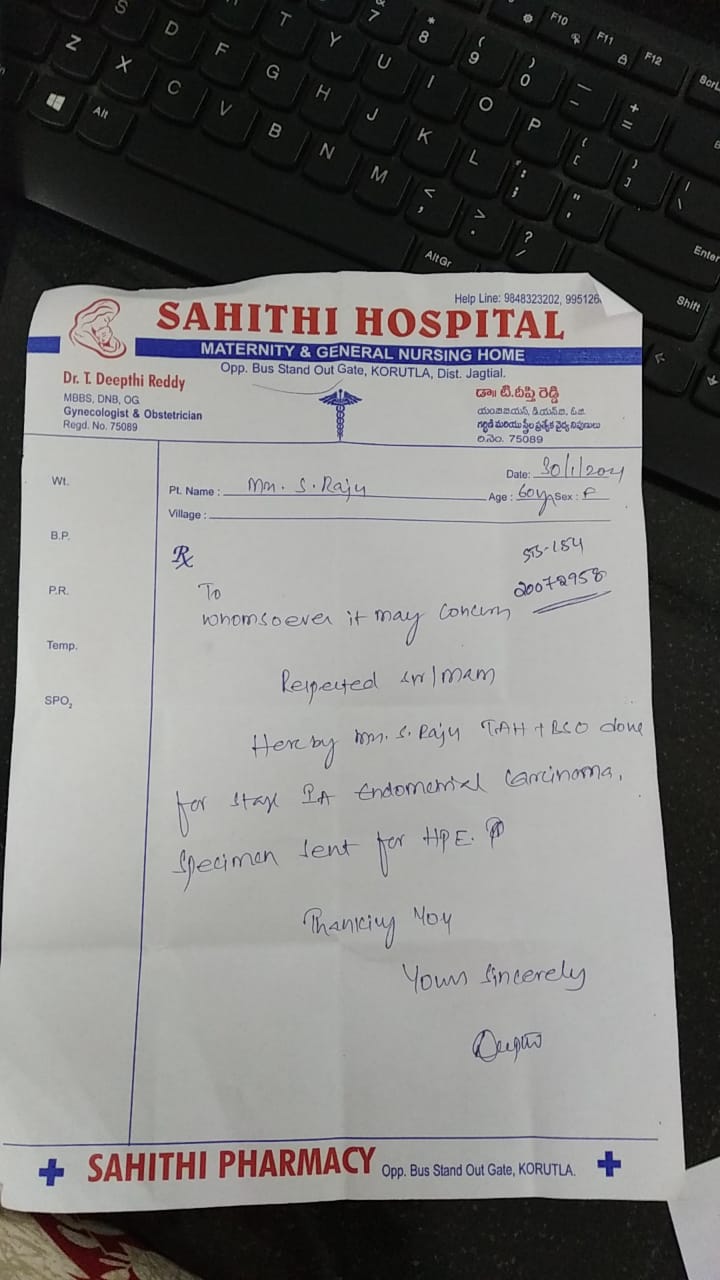 Help Line: 9848323202, 995126
SAHITHI HOSPITAL
MATERNITY & GENERAL NURSING HOME
Opp. Bus Stand Out Gate, KORUTLA, Dist. Jagtial.
Dr. T. Deepthi Reddy
MBBS, DNB, OG
Gynecologist & Obstetrician
Regd. No. 75089
డా॥ టి.దీప్తి రెడ్డి
యం.బి.బి.యస్, డి.యన్.బి, ఓ.జి.
గర్భిణి మరియు స్త్రీల ప్రత్యేక వైద్య నిపుణులు
రి.నెం. 75089
Date: 30/1/2024
Pt. Name : Mrs. S. Raju Age : 60y Sex : F
Village :
Wt.
B.P.
P.R.
Temp.
SPO₂
Rx
SB-184
20072958
To
whomsoever it may concern
Respected sir/mam
Hereby mrs. S. Raju TAH + BSO done
for stage IA Endometrial Carcinoma.
Specimen sent for HPE.
Thanking you
Yours Sincerely
SAHITHI PHARMACY Opp. Bus Stand Out Gate, KORUTLA.
Z X C V B N M
S D F G H J K L
T Y U I O P
7
* 8
( 9
) 0
_ -
+ =
{ [
} ]
| \
: ;
" '
< ,
> .
? /
Alt
AltGr
F10
F11
F12
ScrL
Enter
Shift